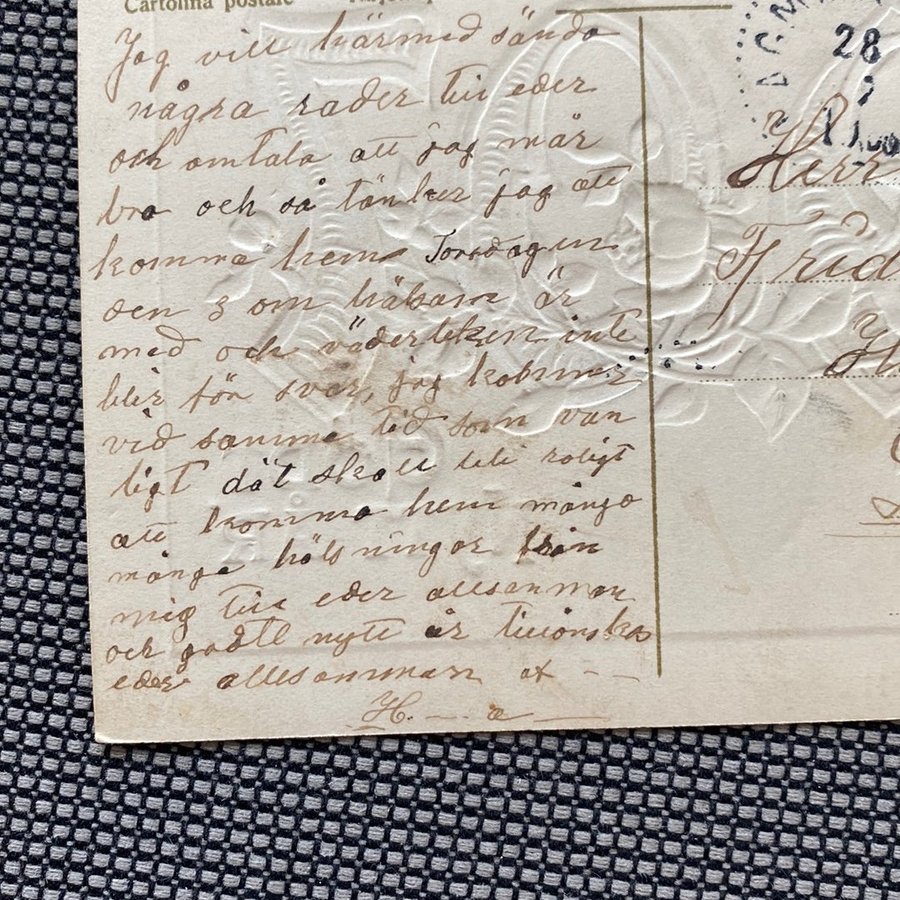 Cartolina postale
Jag vill härmed sända
några rader till eder
och omtala att jag mår
bra och så tänker jag att
komma hem Torsdagen
den 3 om hälsam är
med och väderleken inte
blir för svår, jag kommer
vid samma tid som van
ligt dät skall bli roligt
att komma hem många
många hälsningar från
mig till eder allsamman
och godtt nytt år tillönskas
eder allesamman af
H. a
28
Herr
Frid